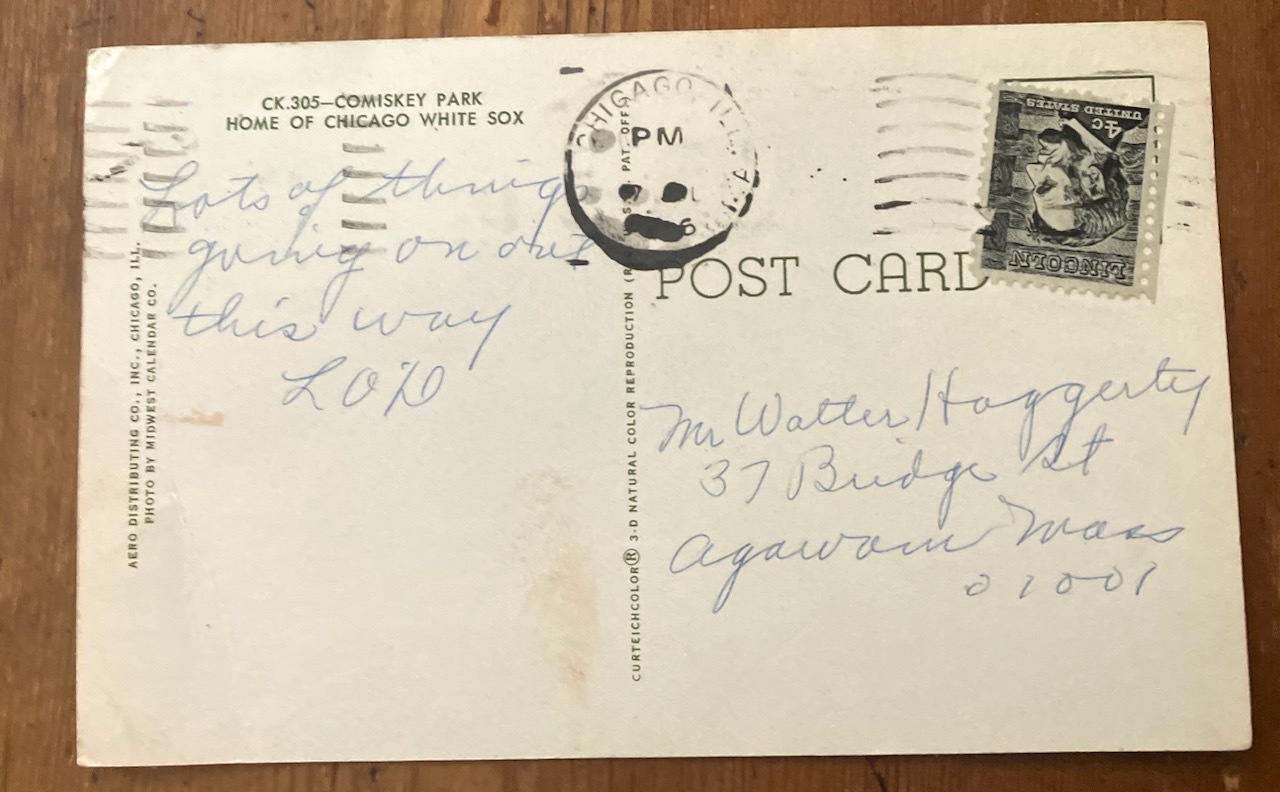 CK.305—COMISKEY PARK
HOME OF CHICAGO WHITE SOX
Lots of things
going on out
this way
AERO DISTRIBUTING CO., INC., CHICAGO, ILL.
PHOTO BY MIDWEST CALENDAR CO.
CURTEICHCOLOR® 3-D NATURAL COLOR REPRODUCTION
PAT. OFF.
CHICAGO, ILL.
PM
POST CARD
LINCOLN
4c
UNITED STATES
Mr Walter Haggerty
37 Bridge St
Agawam Mass
01001